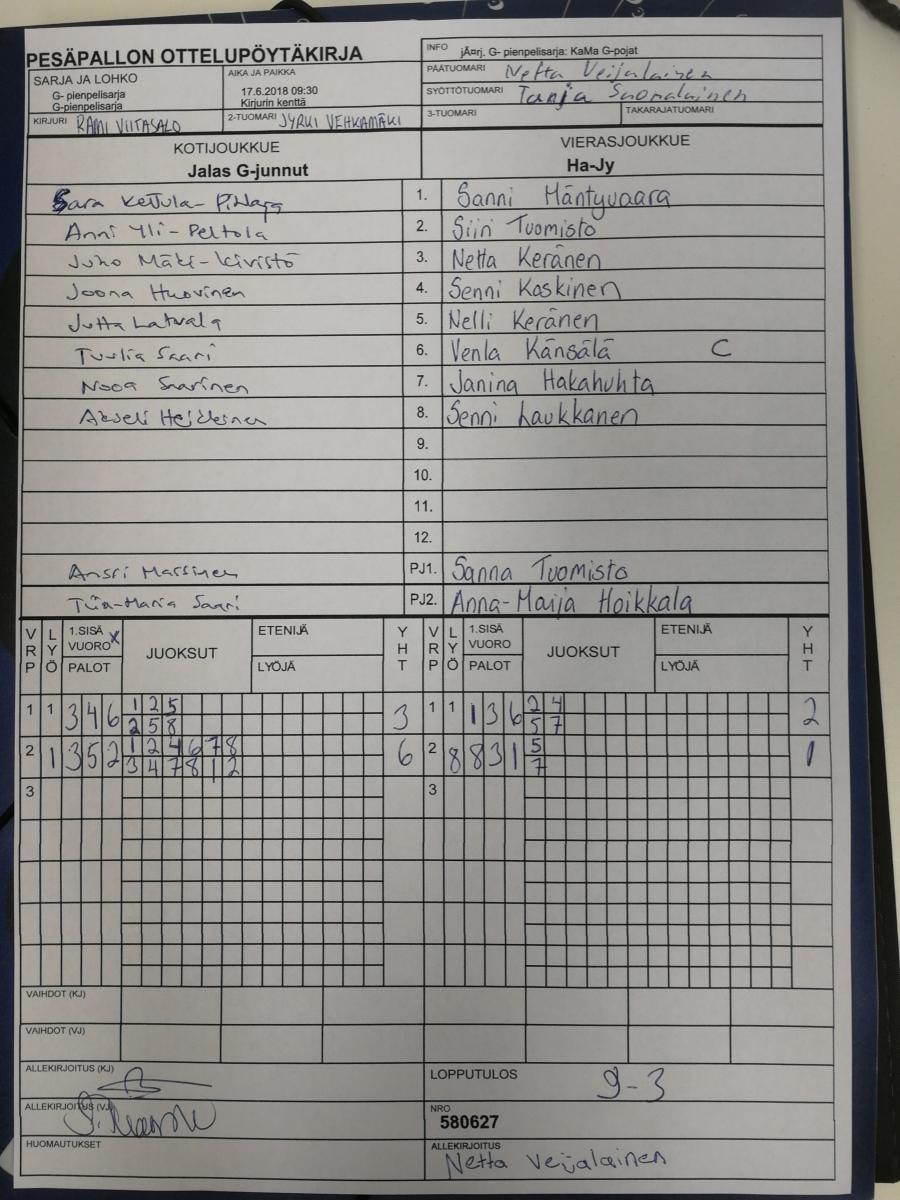 PESÄPALLON OTTELUPÖYTÄKIRJA
INFO jÄ¤rj. G- pienpelisarja: KaMa G-pojat
SARJA JA LOHKO
G- pienpelisarja
G-pienpelisarja
AIKA JA PAIKKA
17.6.2018 09:30
Kirjurin kenttä
PÄÄTUOMARI Netta Veijalainen
SYÖTTÖTUOMARI Tanja Suomalainen
KIRJURI RAMI VIITASALO
2-TUOMARI JYRKI VEHKAMÄKI
3-TUOMARI
TAKARAJATUOMARI
KOTIJOUKKUE
Jalas G-junnut
VIERASJOUKKUE
Ha-Jy
Sara Kettula- 1. Sanni Mäntyvaara
Anni Yli-Peltola 2. Siiri Tuomisto
Juho Mäki-Kivistö 3. Netta Keränen
Joona Huovinen 4. Senni Koskinen
Jutta Latvala 5. Nelli Keränen
Tuulia Saari 6. Venla Känsälä C
Nooa Saarinen 7. Janina Hakahuhta
Akseli Heikkinen 8. Senni Laukkanen
9.
10.
11.
12.
Anssi PJ1. Sanna Tuomisto
Tiia-Maria Saari PJ2. Anna-Maija Hoikkala
VRP LYÖ 1.SISÄ VUORO X PALOT JUOKSUT ETENIJÄ LYÖJÄ YHT VRP LYÖ 1.SISÄ VUORO PALOT JUOKSUT ETENIJÄ LYÖJÄ YHT
1 1 3 4 6 1 2 5 3 1 1 1 3 6 2 4 2
2 5 8 5 7
2 1 3 5 2 1 2 4 6 7 8 6 2 8 8 3 1 5 1
3 4 7 8 1 2 7
3 3
VAIHDOT (KJ)
VAIHDOT (VJ)
ALLEKIRJOITUS (KJ)
LOPPUTULOS 9-3
ALLEKIRJOITUS (VJ)
NRO
580627
HUOMAUTUKSET
ALLEKIRJOITUS
Netta Veijalainen